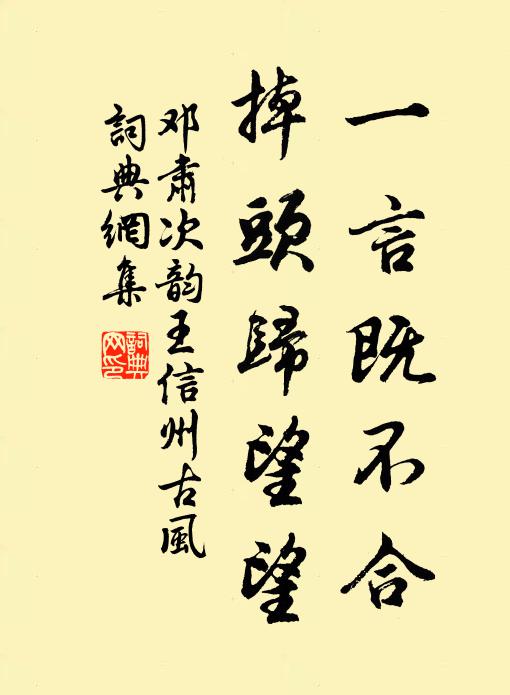 一言既不合
掉頭歸望望
邓肅次韵王信州古風
詞典網集
詞典網印